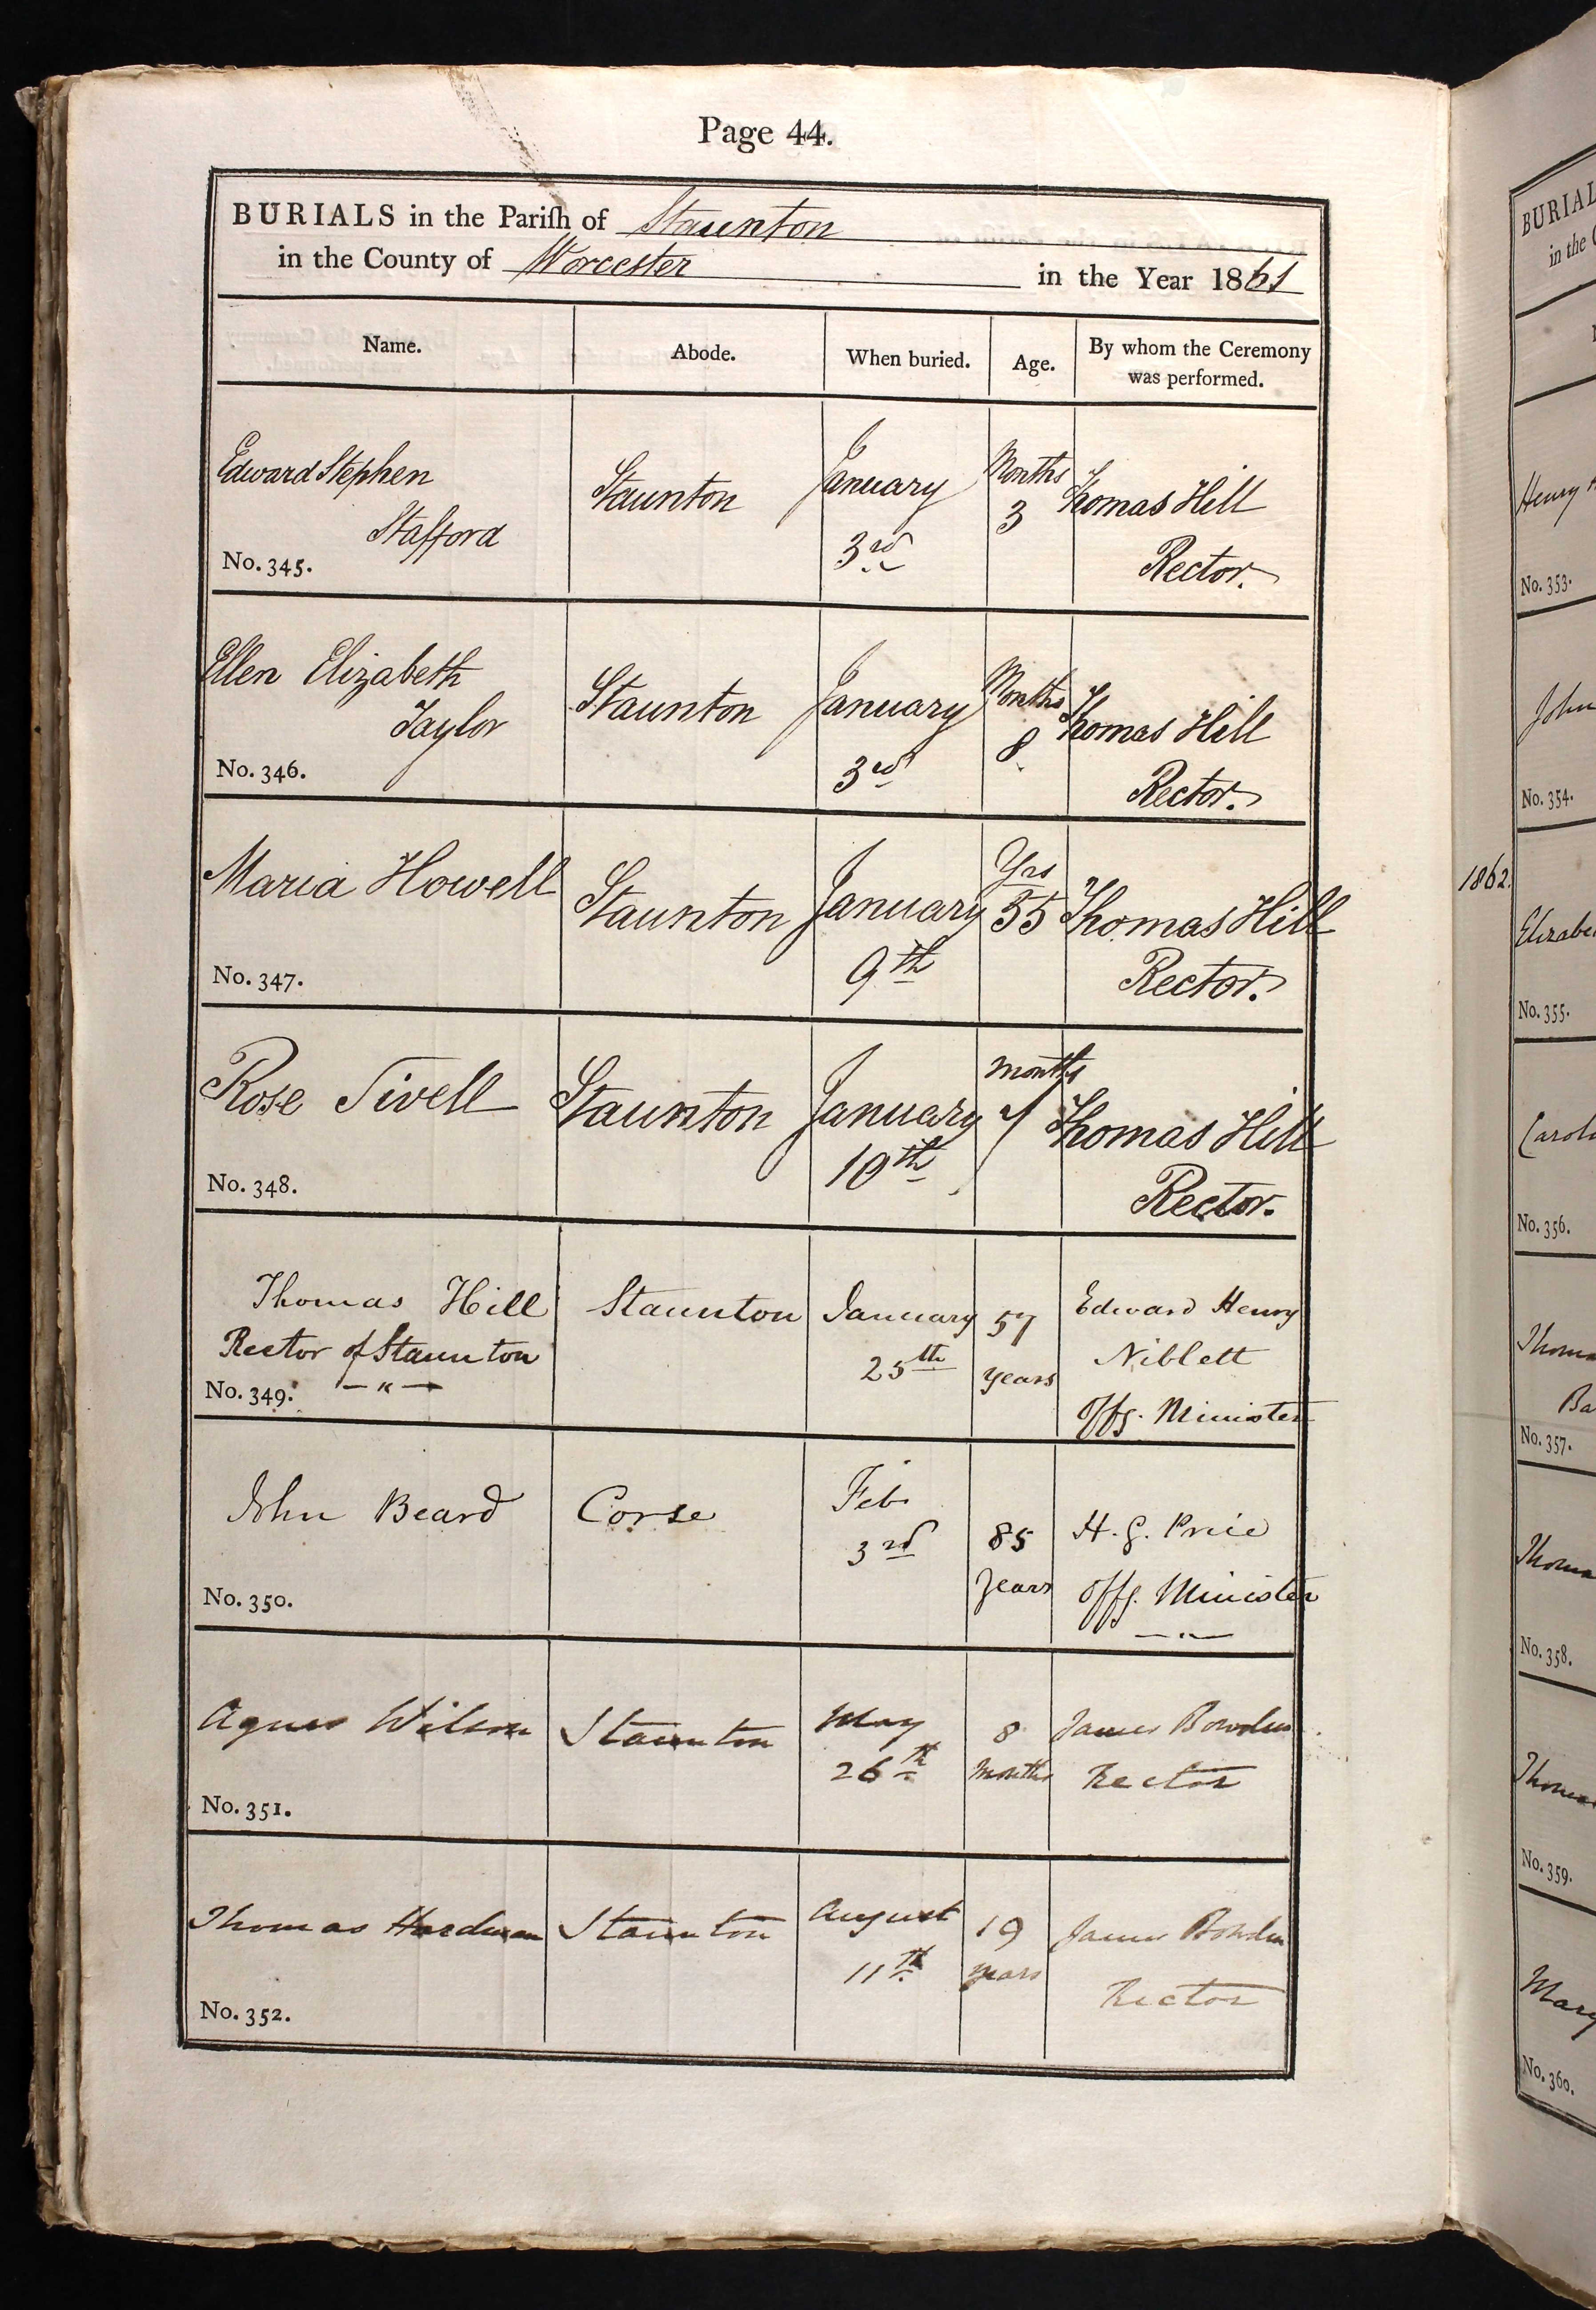 Page 44.
BURIALS in the Pariſh of Staunton
in the County of Worcester in the Year 1861
Name. Abode. When buried. Age. By whom the Ceremony was performed.
Edward Stephen Staunton January Months Thomas Hill
Stafford 3rd 3 Rector.
No. 345.
Ellen Elizabeth Staunton January Months Thomas Hill
Taylor 3rd 8 Rector.
No. 346.
Maria Howell Staunton January Yrs 55 Thomas Hill
9th Rector.
No. 347.
Rose Sivell Staunton January months 7 Thomas Hill
10th Rector.
No. 348.
Thomas Hill Staunton January 57 Edward Henry
Rector of Staunton 25th years Niblett
No. 349. — " — Offg. Minister
John Beard Corse Feb. 85 H. G. Price
3rd years Offg. Minister
No. 350. — " —
Agnes Wilson Staunton May 8 James Bowden
26th Months Rector
No. 351.
Thomas Hardman Staunton August 19 James Bowden
11th years Rector
No. 352.
BURIAL
in the
Henry
No. 353.
John
No. 354.
1862.
No. 355.
No. 356.
No. 357.
No. 358.
No. 359.
Mary
No. 360.